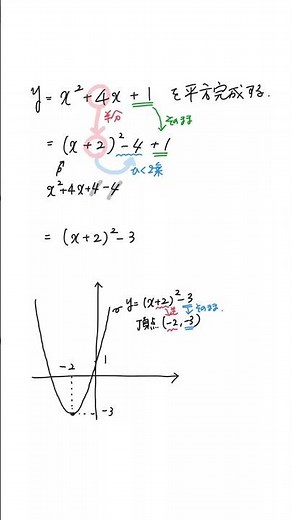 y = x² + 4x + 1 を平方完成する.
半分
そのまま
= (x + 2)² - 4 + 1
ひく2乗
x² + 4x + 4 - 4
= (x + 2)² - 3
y = (x+2)² - 3
逆 そのまま
頂点 (-2, -3)
1
-2
-3